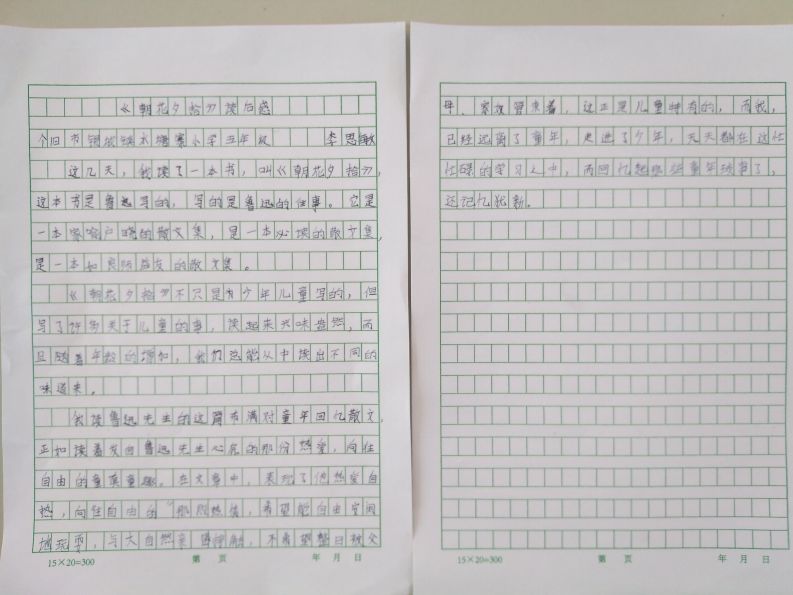 《朝花夕拾》读后感
个旧市锡城镇水塘寨小学五年级 李思敏
这几天，我读了一本书，叫《朝花夕拾》，
这本书是鲁迅写的，写的是鲁迅的往事。它是
一本家喻户晓的散文集，是一本必读的散文集，
是一本如良师益友的散文集。
《朝花夕拾》不只是为少年儿童写的，但
写了许多关于儿童的事，读起来兴味盎然，而
且随着年龄的增加，我们总能从中读出不同的
味道来。
我读鲁迅先生的这篇布满对童年回忆散文，
正如读着发自鲁迅先生心底的那份热爱，向往
自由的童真童趣。在文章中，表现了他热爱自
然，向往自由的那股热情，希望能自由空间
地玩耍，与大自然亲 ，不希望整日被父
15×20=300 第 页 年 月 日
母、家族管束着，这正是儿童特有的，而我，
已经远离了童年，走进了少年，天天都在这忙
忙碌的学习之中，而回忆起那些童年琐事了，
还记忆犹新。
15×20=300 第 页 年 月 日